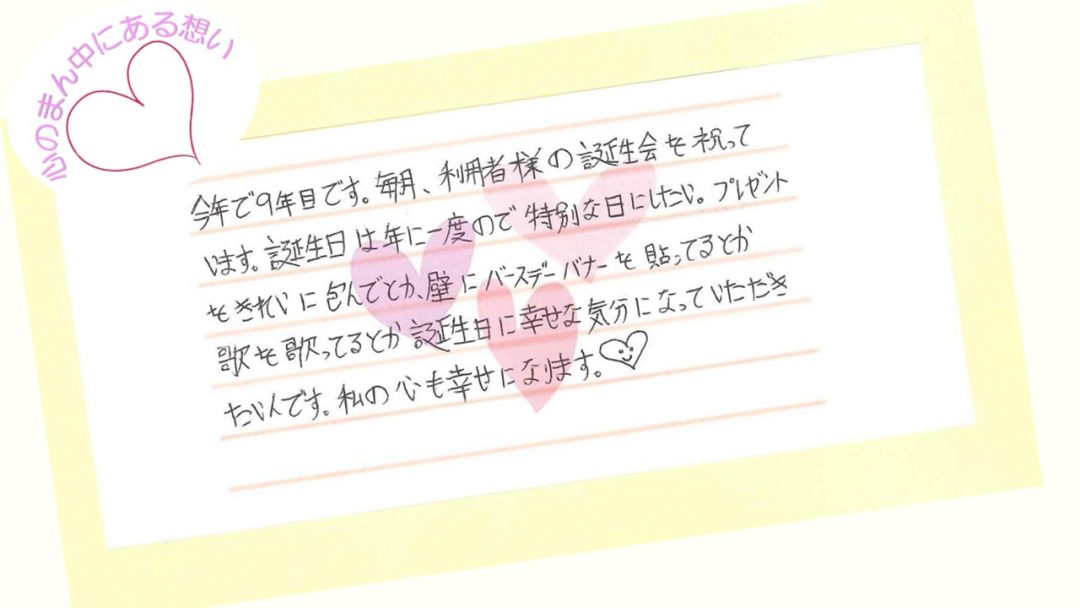 心のまん中にある想い
今年で9年目です。毎月、利用者様の誕生会を祝って
います。誕生日は年に一度ので特別な日にしたい。プレゼント
をきれいに包んでとか、壁にバースデーバナーを貼ってるとか
歌を歌ってるとか誕生日に幸せな気分になっていただき
たいんです。私の心も幸せになります。